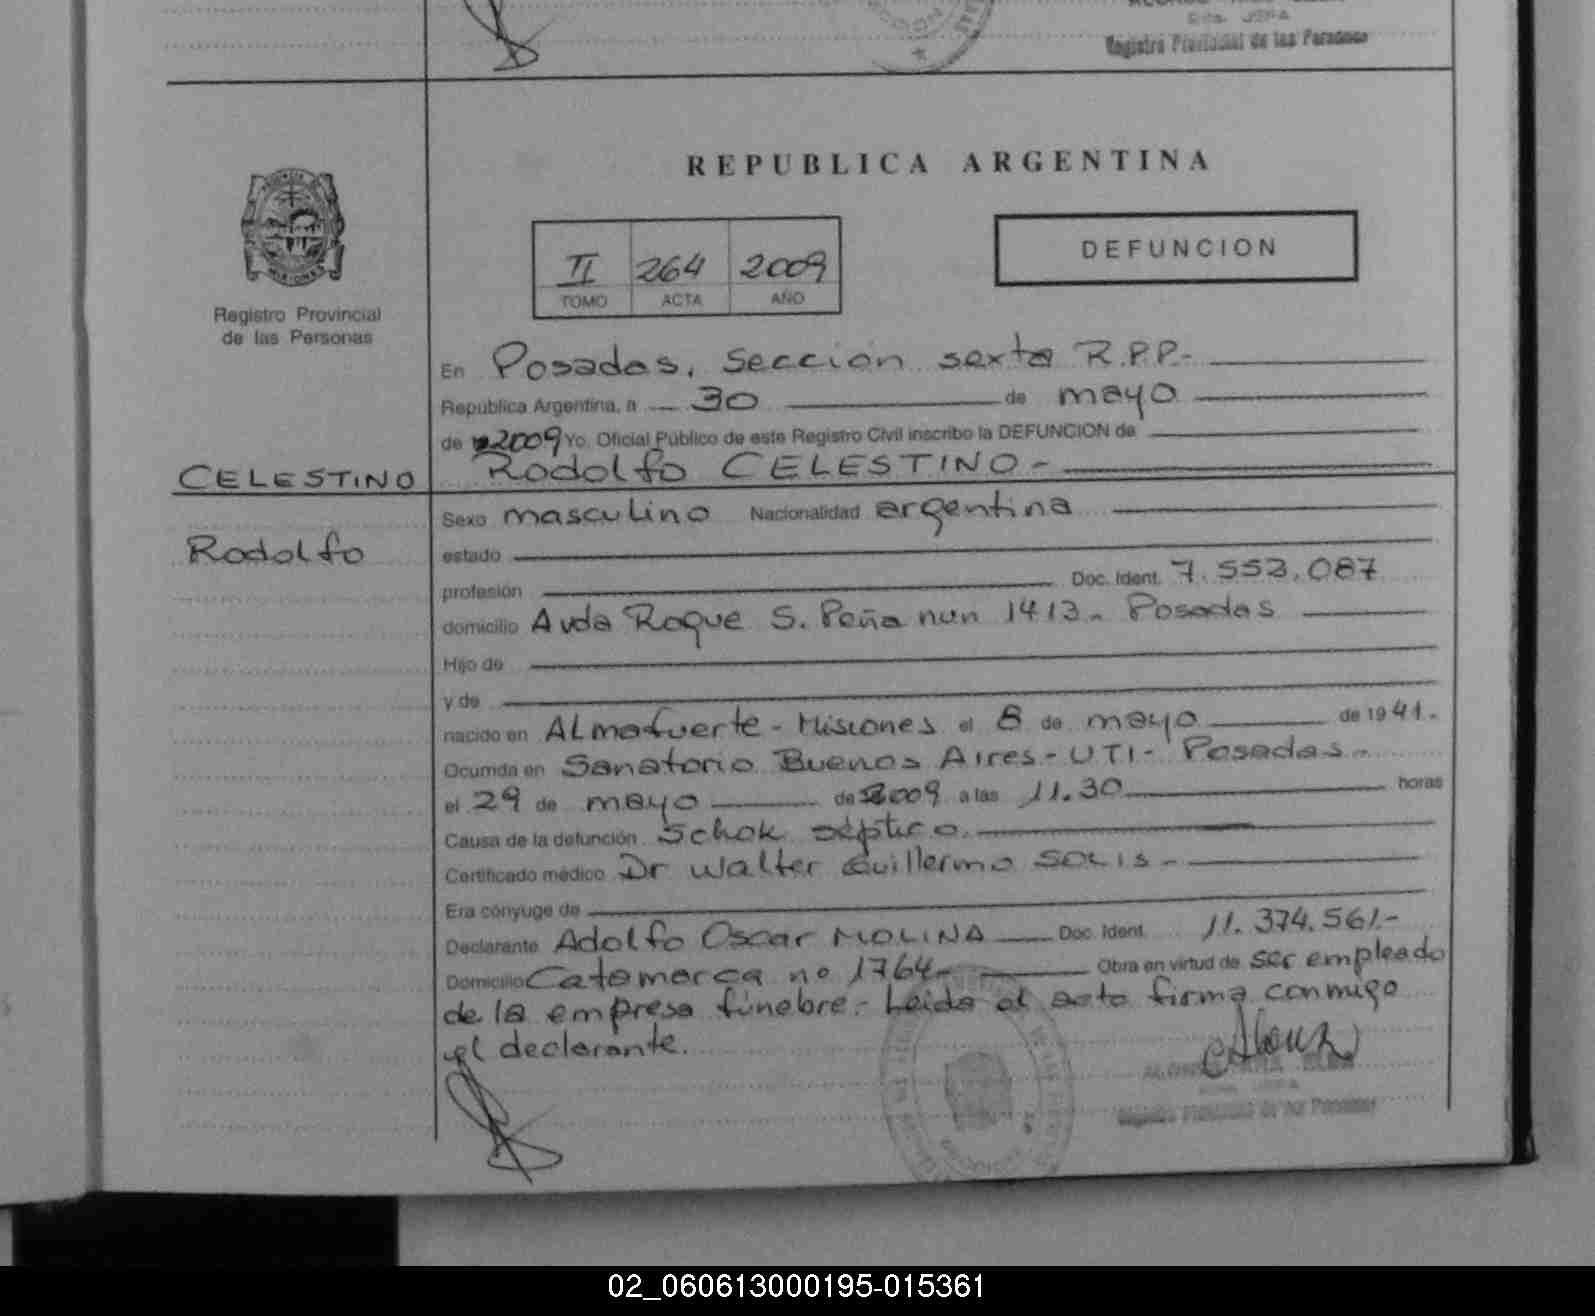 Registro Provincial de las Personas
REPUBLICA ARGENTINA
II 264 2009
TOMO ACTA AÑO
DEFUNCION
Registro Provincial
de las Personas
En Posadas, Sección sexta R.P.P.-
República Argentina, a 30 de mayo
de 2009 Yo, Oficial Público de este Registro Civil inscribo la DEFUNCION de
CELESTINO Rodolfo CELESTINO-
Sexo masculino Nacionalidad argentina
Rodolfo
estado
profesión Doc. Ident. 7.553.087
domicilio Avda Roque S. Peña nun 1413- Posadas
Hijo de
y de
nacido en Almafuerte - Misiones el 8 de mayo de 1941.
Ocurrida en Sanatorio Buenos Aires - UTI - Posadas-
el 29 de mayo de 2009 a las 11.30 horas
Causa de la defunción Schok séptico.
Certificado médico Dr Walter Guillermo SOLIS-
Era cónyuge de
Declarante Adolfo Oscar MOLINA Doc. Ident. 11.374.561.-
Domicilio Catamarca no 1764- Obra en virtud de ser empleado
de la empresa fúnebre.- Leida el acta firma conmigo
el declarante.
Registro Provincial de las Personas
02_060613000195-015361